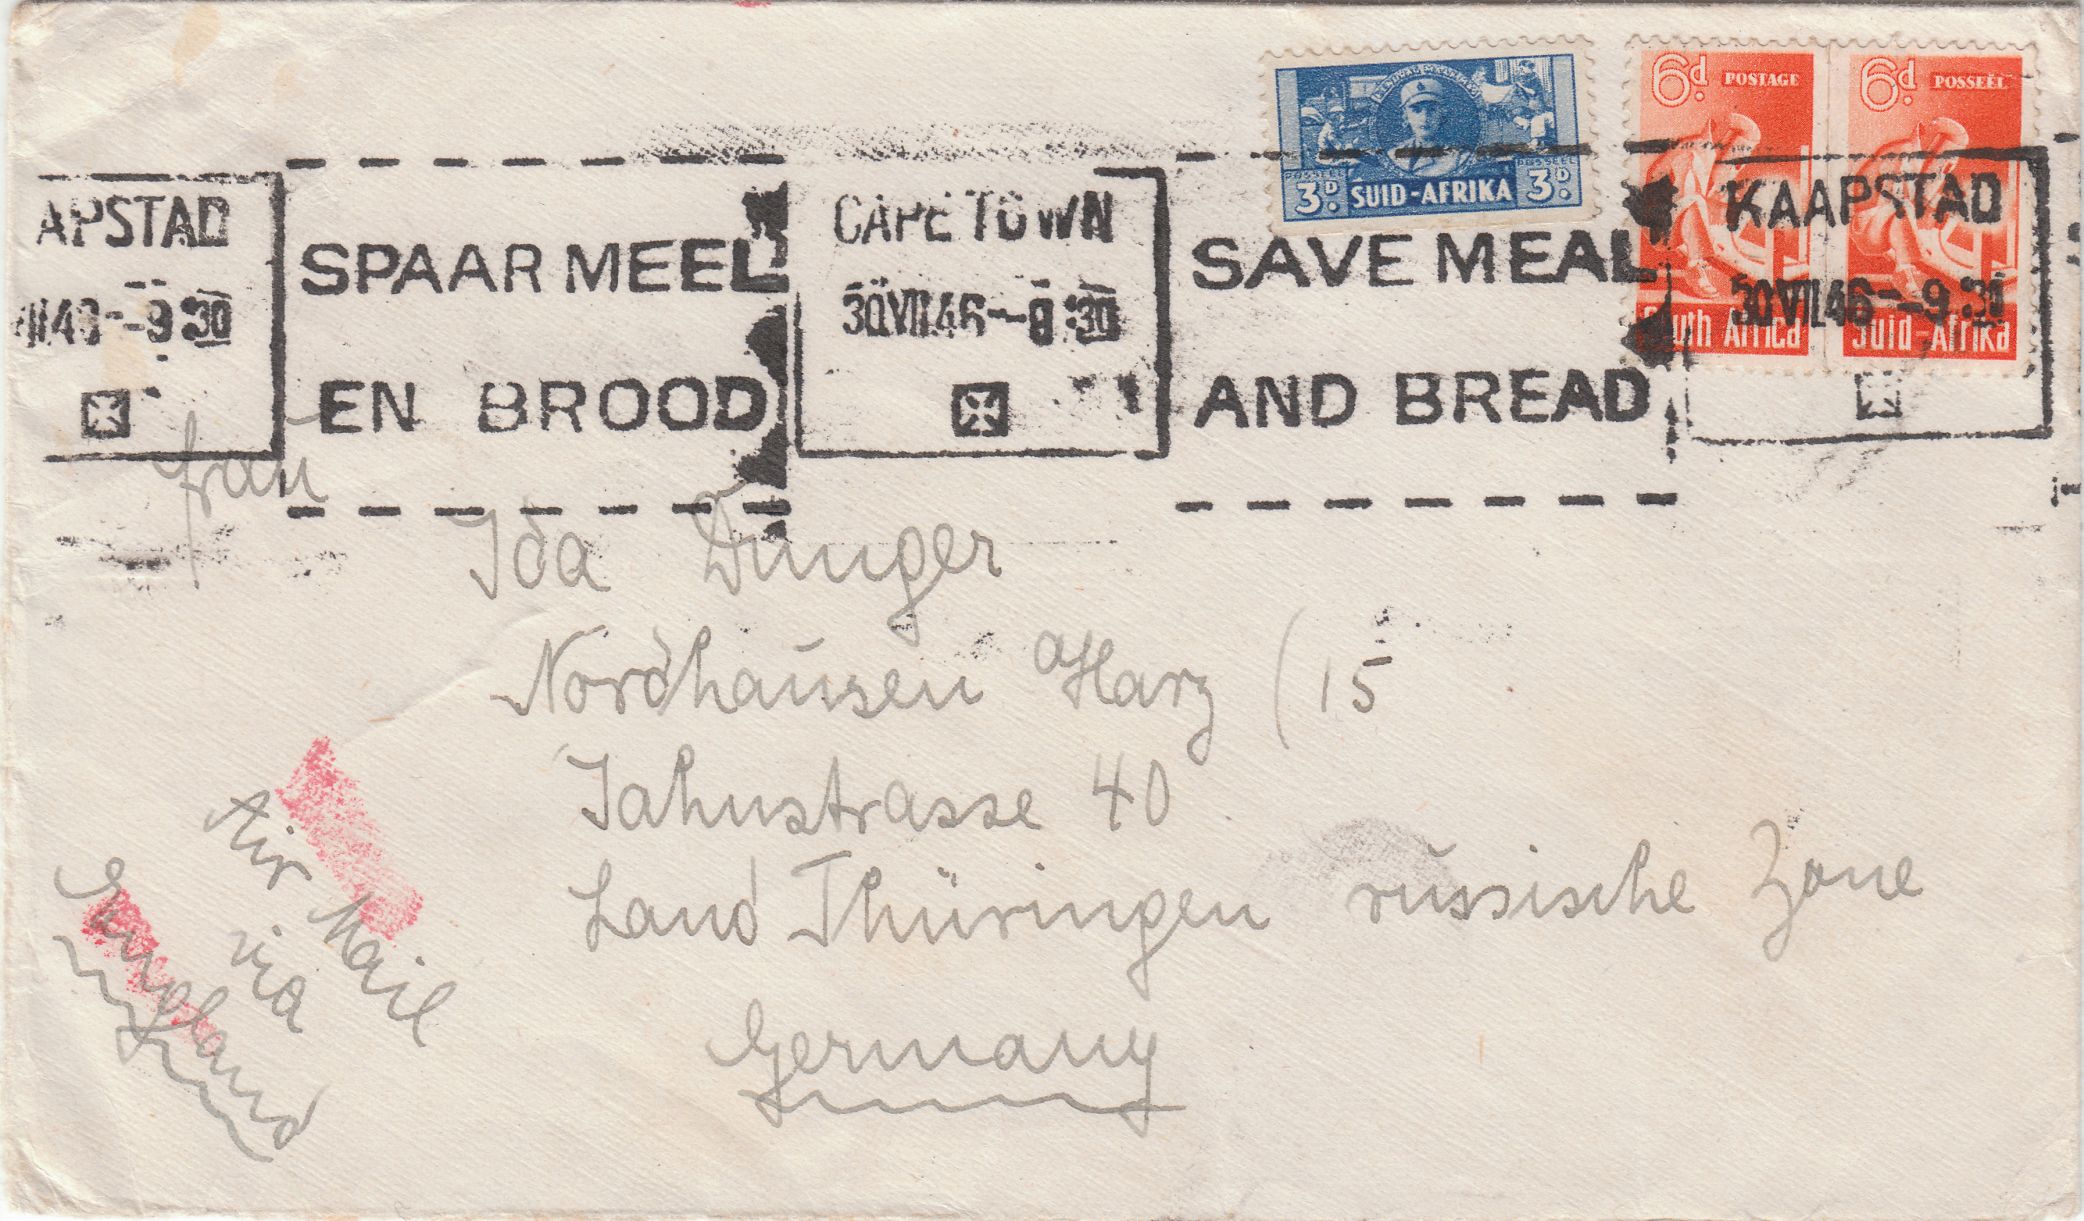 6d. POSTAGE 6d. POSSEËL
POSSEEL POSSEEL
3D. SUID-AFRIKA 3D.
South Africa Suid-Afrika
APSTAD
CAPE TOWN
30 VII 46 - 9 30
KAAPSTAD
30 VII 46 - 9 30
SPAAR MEEL
EN BROOD
SAVE MEAL
AND BREAD
Frau
Ida Dunger
Nordhausen a Harz (15
Jahnstrasse 40
Land Thüringen russische Zone
Germany
Air Mail
via
England